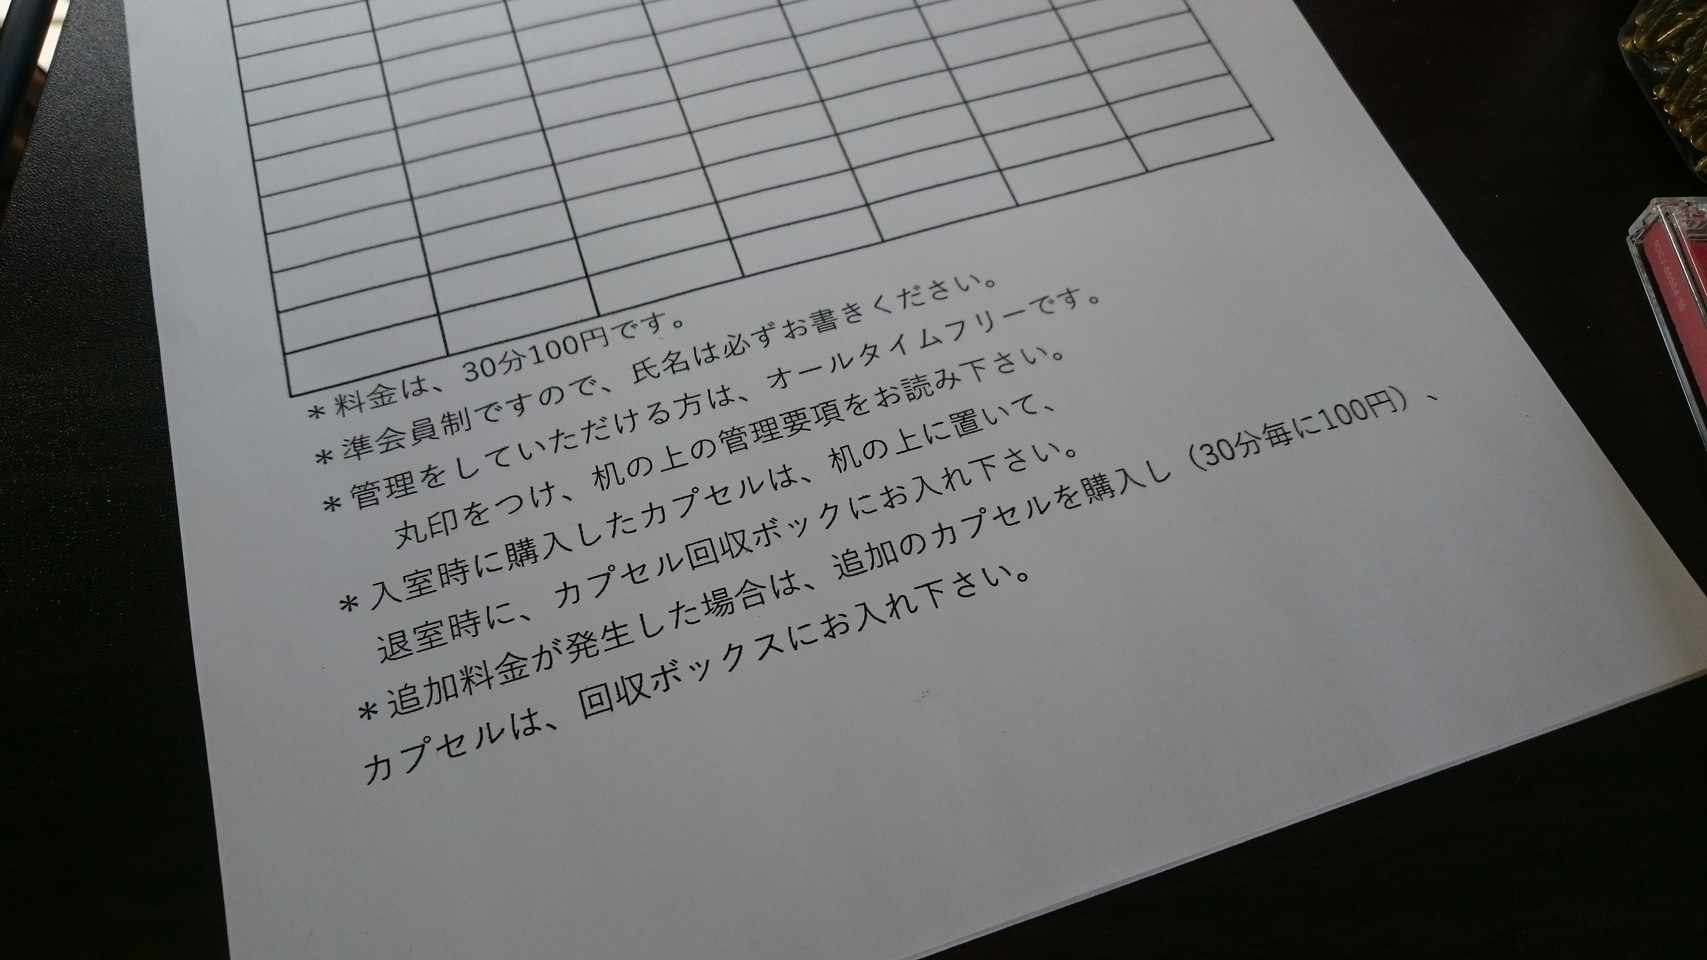 ＊料金は、30分100円です。
＊準会員制ですので、氏名は必ずお書きください。
＊管理をしていただける方は、オールタイムフリーです。
丸印をつけ、机の上の管理要項をお読み下さい。
＊入室時に購入したカプセルは、机の上に置いて、
退室時に、カプセル回収ボックにお入れ下さい。
＊追加料金が発生した場合は、追加のカプセルを購入し（30分毎に100円）、
カプセルは、回収ボックスにお入れ下さい。